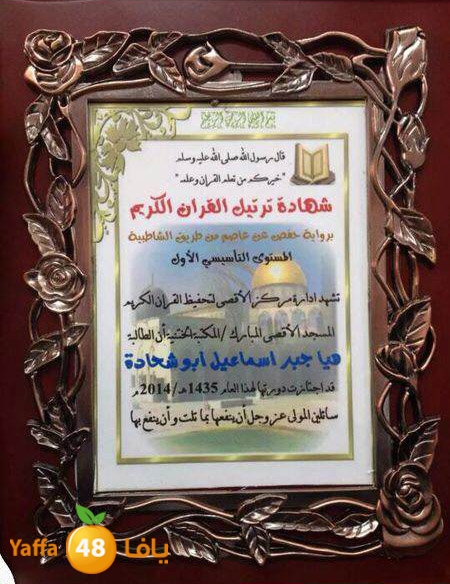 بسم الله الرحمن الرحيم
قال رسول الله صلى الله عليه وسلم
"خيركم من تعلم القرآن وعلمه"
شهادة ترتيل القرآن الكريم
برواية حفص عن عاصم من طريق الشاطبية
المستوى التأسيسي الأول
تشهد ادارة مركز الأقصى لتحفيظ القرآن الكريم
المسجد الأقصى المبارك / المكتبة الختنية أن الطالبة
هيا جبر اسماعيل أبو شحادة
قد اجتازت دورتها لهذا العام 1435هـ/2014م
سائلين المولى عز وجل أن ينفعها بما تلت وأن ينفع بها
Yaffa 48 يافا